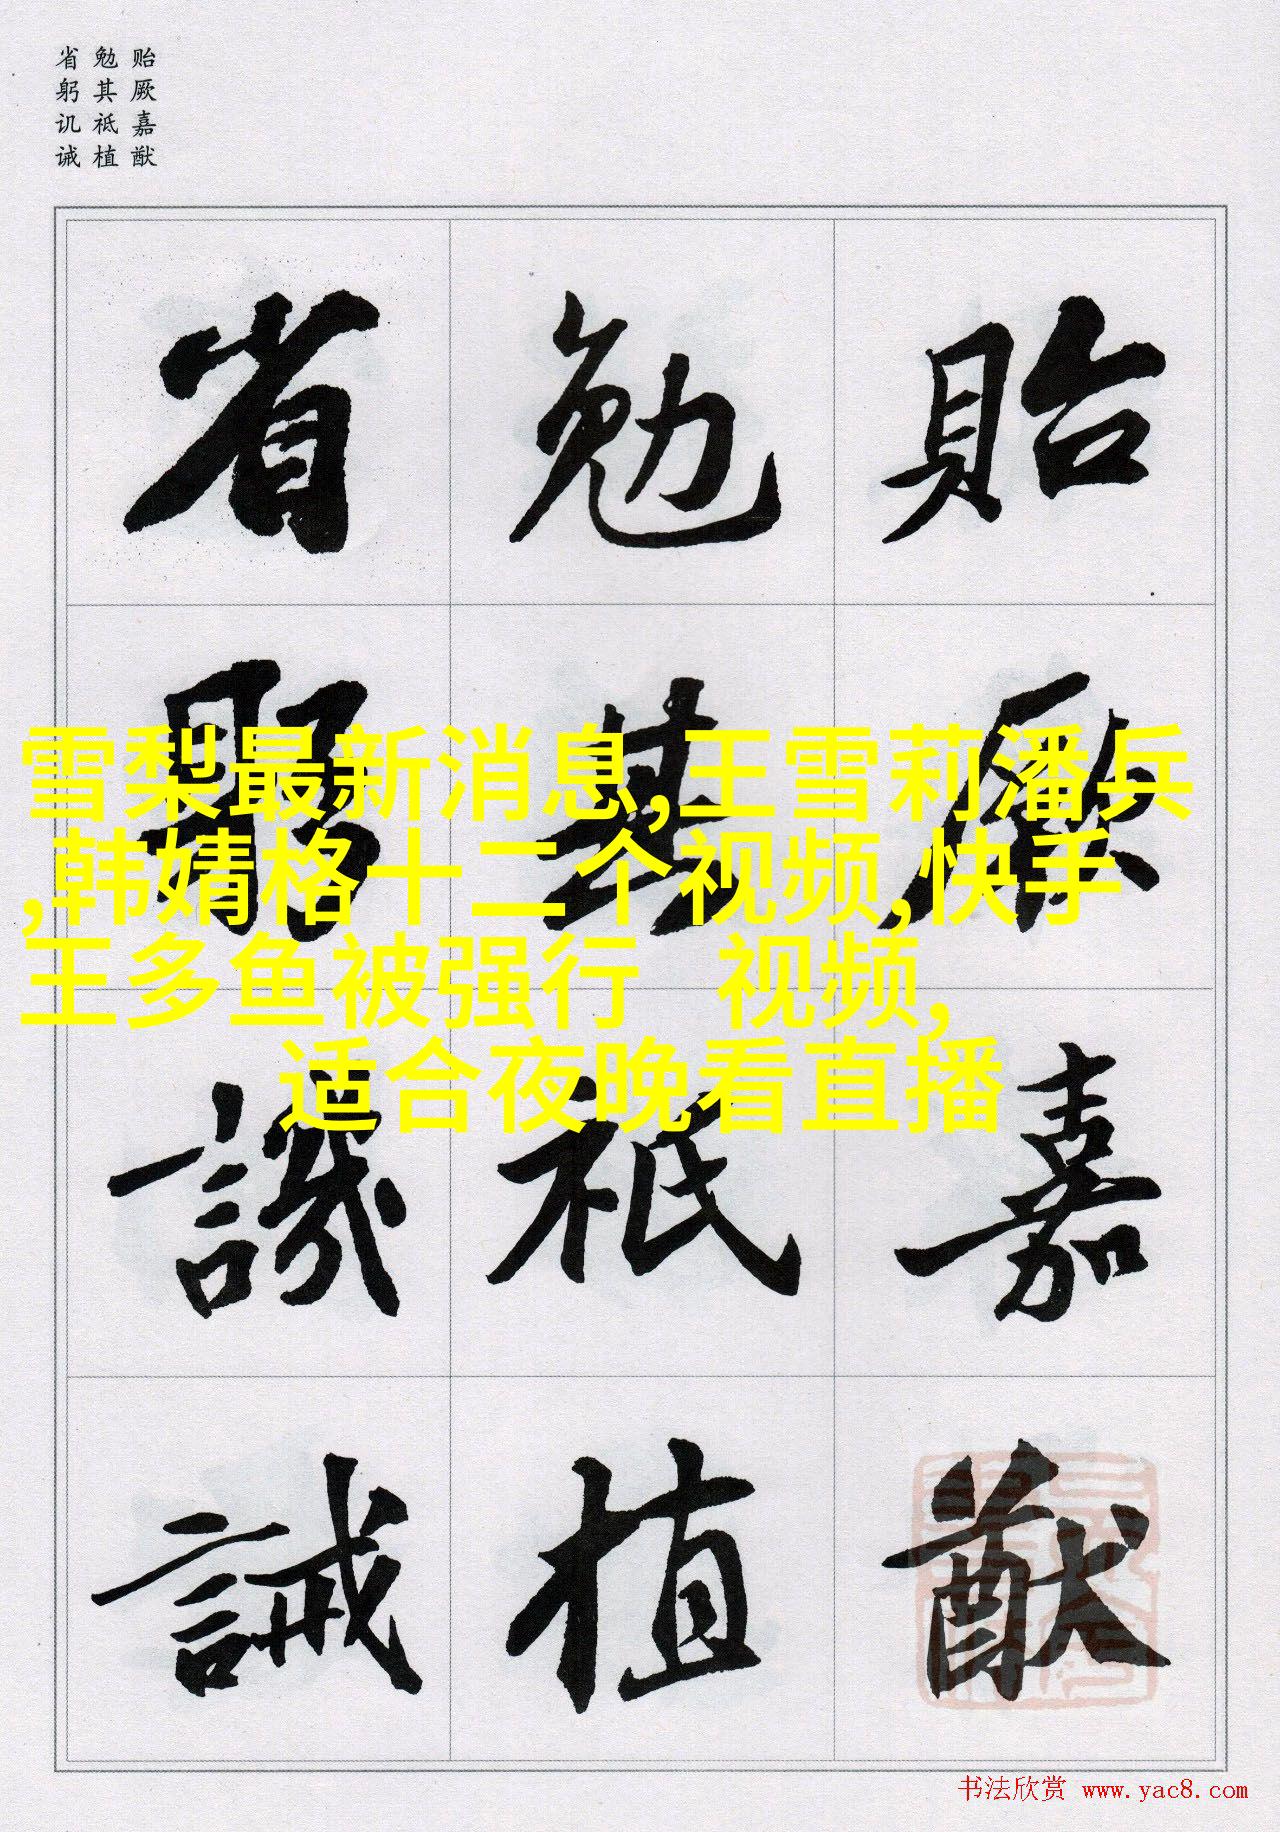 贻厥嘉猷
勉其祗植
省躬讥诫
貽厥嘉猷
勉其祗植
省躬譏誡
雪梨最新消息,王雪莉潘兵
,韩婧格十二个视频,快手
王多鱼被强行 视频,
适合夜晚看直播
书法欣赏 www.yac8.com